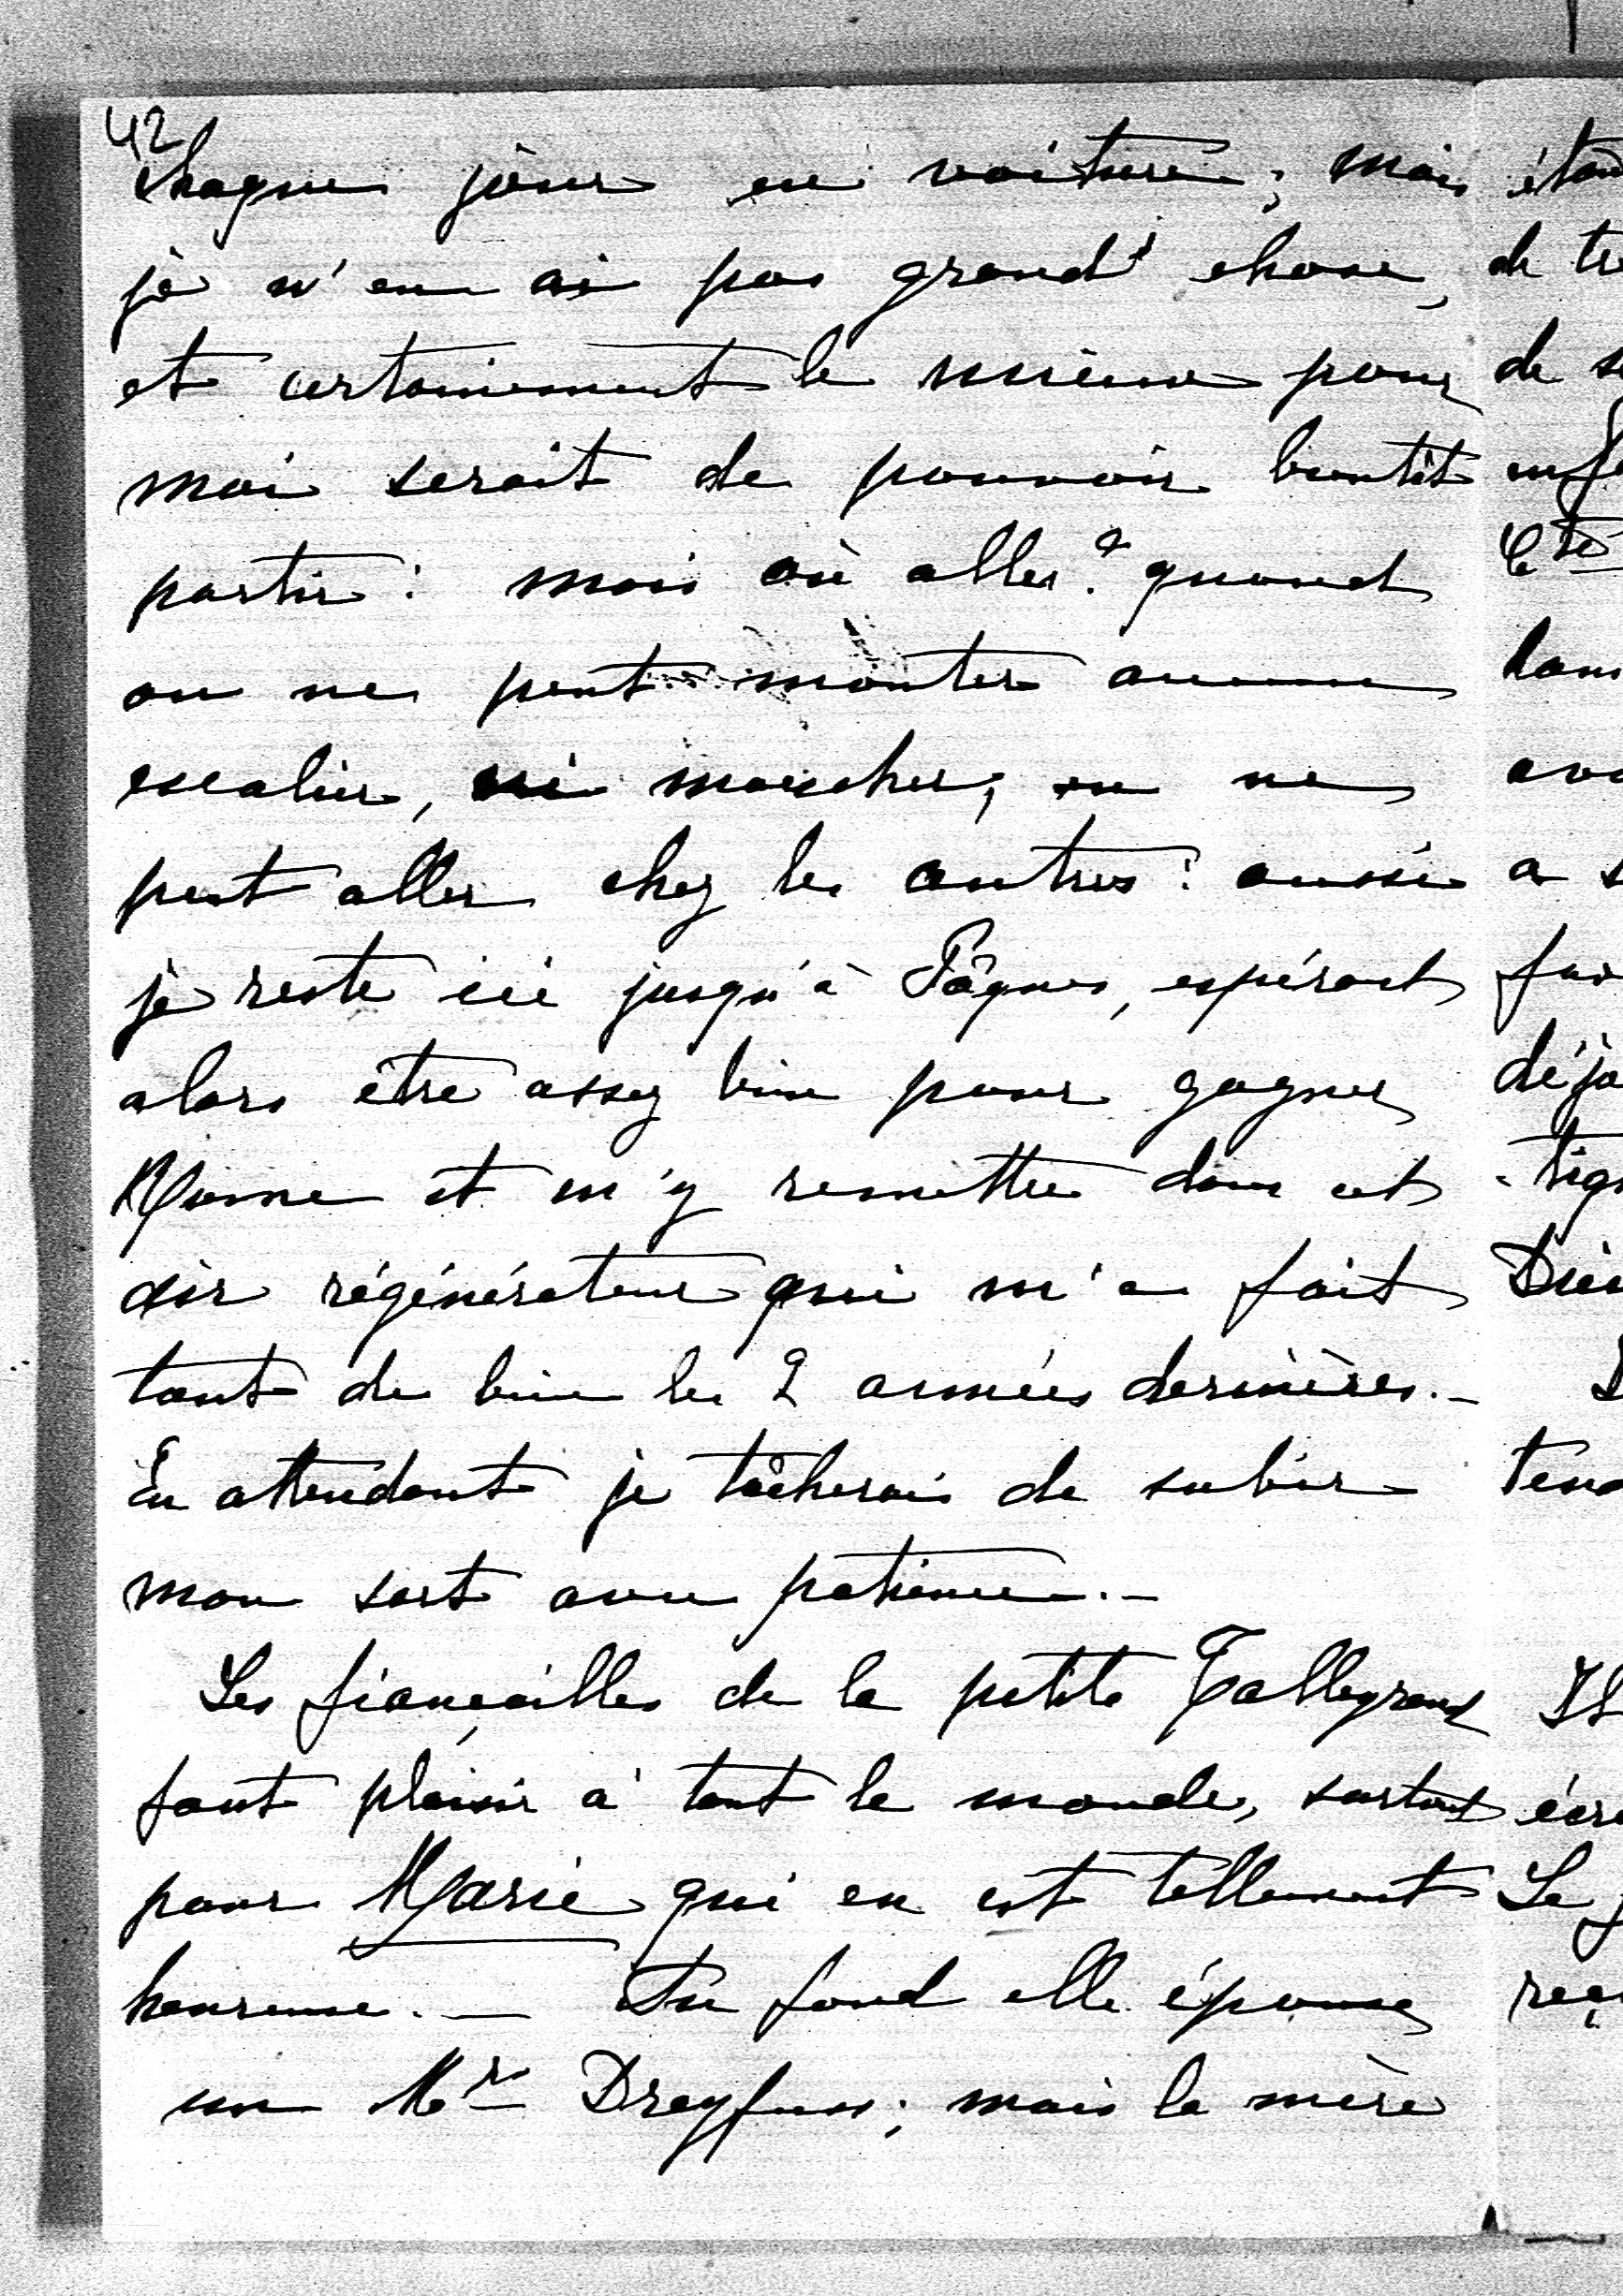 42
chaque jour en voiture ; mais
je n'en ai pas grand' chose,
et certainement le mieux pour
moi serait de pouvoir bientôt
partir : mais où aller ? quand
on ne peut monter aucun
escalier, ni marcher, on ne
peut aller chez les autres : aussi
je reste ici jusqu'à Pâques, espérant
alors être assez bien pour gagner
et m'y remettre dans cet
air régénérateur qui m'a fait
tant de bien les 2 années dernières. _
En attendant je tâcherai de subir
mon sort avec patience. _
Les fiançailles de la petite
font plaisir à tout le monde, surtout
pour Marie qui en est tellement
heureuse. _ Au fond elle épouse
un Mr Dreyfuss ; mais la mère
étan
de tr
de s
Cte
dans
avo
a s
déjà
Dieu
écri
Le
reç